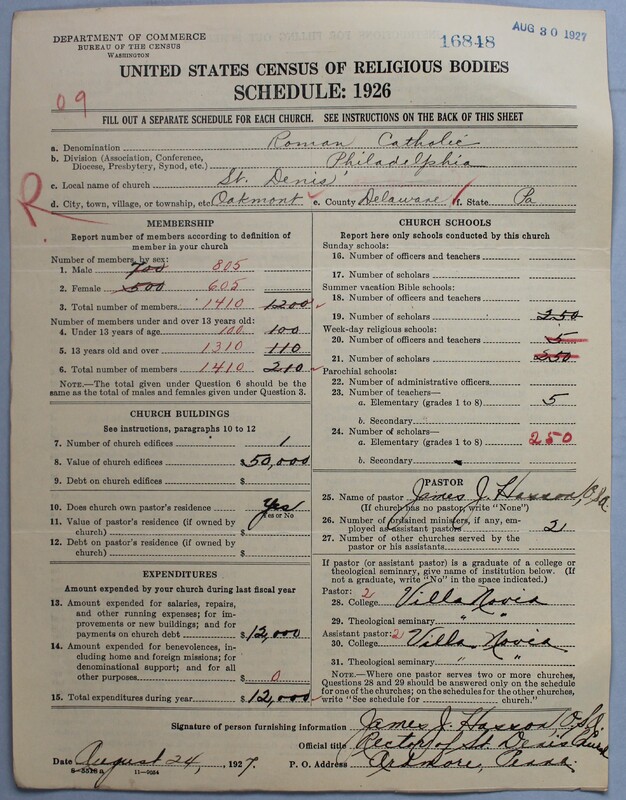 DEPARTMENT OF COMMERCE
BUREAU OF THE CENSUS
WASHINGTON
16848
AUG 30 1927
UNITED STATES CENSUS OF RELIGIOUS BODIES
SCHEDULE: 1926
09
FILL OUT A SEPARATE SCHEDULE FOR EACH CHURCH. SEE INSTRUCTIONS ON THE BACK OF THIS SHEET
a. Denomination Roman Catholic
b. Division (Association, Conference, Diocese, Presbytery, Synod, etc.) Philadelphia
c. Local name of church St. Denis'
R
d. City, town, village, or township, etc Oakmont e. County Delaware f. State Pa
MEMBERSHIP
Report number of members according to definition of
member in your church
Number of members, by sex:
1. Male 700 805
2. Female 500 605
3. Total number of members 1410 1200
Number of members under and over 13 years old:
4. Under 13 years of age 100 100
5. 13 years old and over 1310 110
6. Total number of members 1410 210
NOTE.—The total given under Question 6 should be
same as the total of males and females given under Question 3.
CHURCH BUILDINGS
See instructions, paragraphs 10 to 12
7. Number of church edifices 1
8. Value of church edifices $50,000
9. Debt on church edifices $
10. Does church own pastor's residence Yes
Yes or No
11. Value of pastor's residence (if owned by
church) $
12. Debt on pastor's residence (if owned by
church) $
EXPENDITURES
Amount expended by your church during last fiscal year
13. Amount expended for salaries, repairs,
and other running expenses; for im-
provements or new buildings; and for
payments on church debt $12,000
14. Amount expended for benevolences, in-
cluding home and foreign missions; for
denominational support; and for all
other purposes $ 0
15. Total expenditures during year $12,000
CHURCH SCHOOLS
Report here only schools conducted by this church
Sunday schools:
16. Number of officers and teachers
17. Number of scholars
Summer vacation Bible schools:
18. Number of officers and teachers
19. Number of scholars 250
Week-day religious schools:
20. Number of officers and teachers 5
21. Number of scholars 250
Parochial schools:
22. Number of administrative officers
23. Number of teachers—
a. Elementary (grades 1 to 8) 5
b. Secondary
24. Number of scholars—
a. Elementary (grades 1 to 8) 250
b. Secondary
PASTOR
25. Name of pastor James J. Hasson O.S.A.
(If church has no pastor, write "None")
26. Number of ordained ministers, if any, em-
ployed as assistant pastors 2
27. Number of other churches served by the
pastor or his assistants
If pastor (or assistant pastor) is a graduate of a college or
theological seminary, give name of institution below. (If
not a graduate, write "No" in the space indicated.)
Pastor: 2
28. College Villa Novia
29. Theological seminary " "
Assistant pastor: 2
30. College Villa Novia
31. Theological seminary " "
NOTE.—Where one pastor serves two or more churches,
Questions 28 and 29 should be answered only on the schedule
for one of the churches; on the schedules for the other churches,
write "See schedule for church."
Signature of person furnishing information James J. Hasson O.S.A.
Official title Rector of St. Denis Church
Date August 24, 1927. P. O. Address Ardmore, Penna.
8-5518a 11-9054